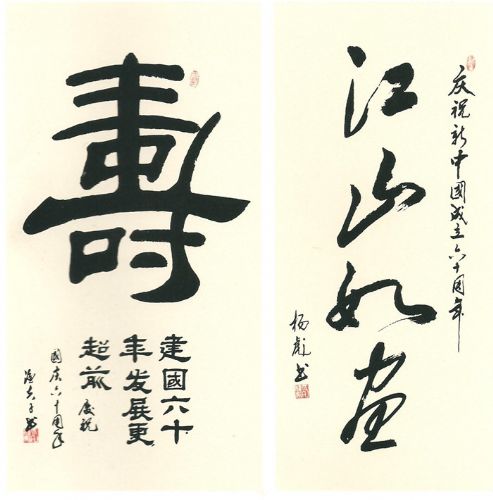 壽
建國六十
年发展更
超前
慶祝
國庆六十周年
庆祝新中國成立六十周年
江山如画
杨彪书